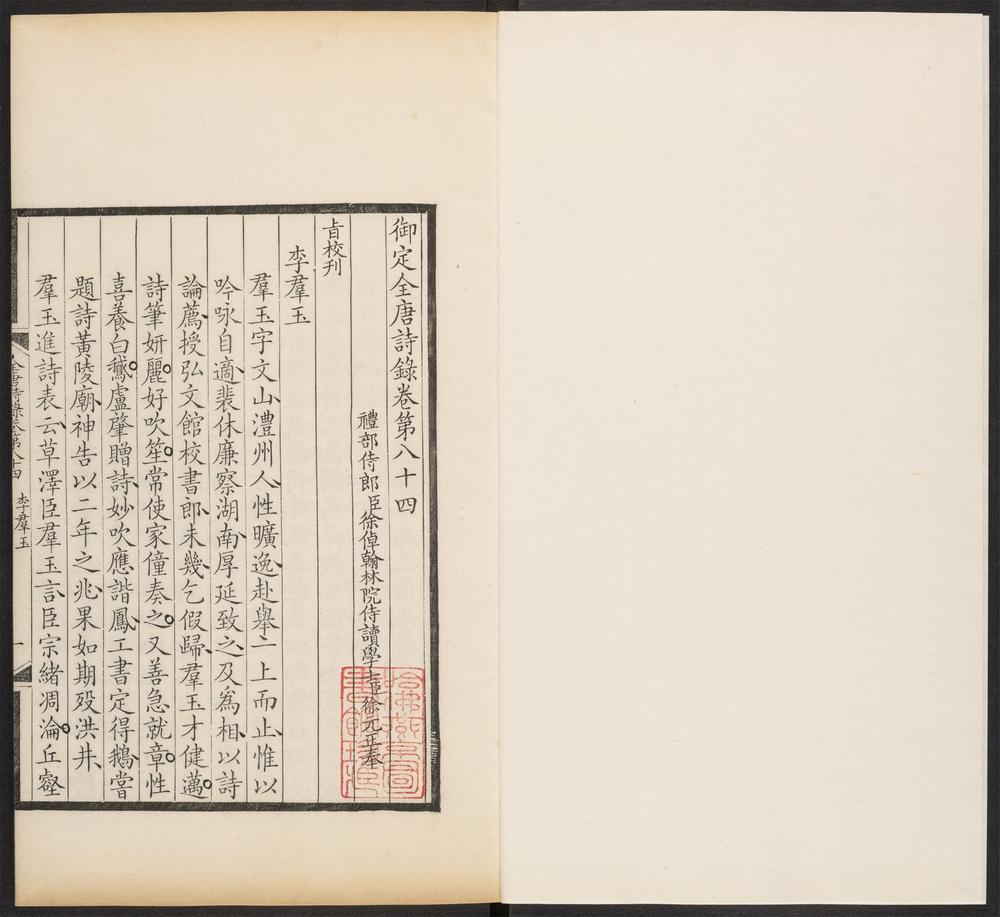 御定全唐詩錄卷第八十四
禮部侍郎臣徐倬翰林院侍讀學士臣徐元正奉
旨校刊
李羣玉
羣玉字文山澧州人性曠逸赴舉一上而止惟以
吟咏自適裴休廉察湖南厚延致之及爲相以詩
論薦授弘文館校書郎未幾乞假歸羣玉才健邁
詩筆妍麗好吹笙常使家僮奏之又善急就章性
喜養白鵝盧肇贈詩妙吹應諧鳳工書定得鵝嘗
題詩黃陵廟神告以二年之兆果如期歿洪井
羣玉進詩表云草澤臣羣玉言臣宗緒凋淪丘壑
全唐詩錄卷第八十四 李羣玉 一
哈佛燕京圖書館珍藏